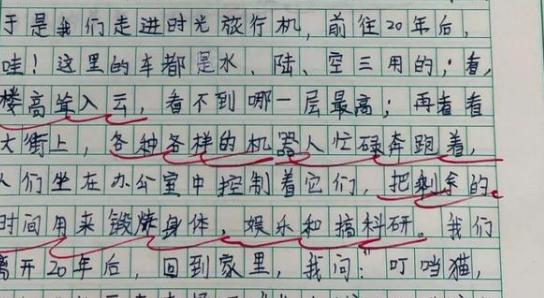 于是我们走进时光旅行机，前往20年后，
哇！这里的车都是水、陆、空三用的；看，
楼高耸入云，看不到哪一层最高；再看看
大街上，各种各样的机器人忙碌奔跑着，
人们坐在办公室中控制着它们，把剩余的
时间用来锻炼身体，娱乐和搞科研。我们
离开20年后，回到家里，我问：“叮当猫，